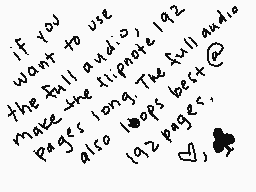 if you
want to use
the full audio,
make the flipnote 192
pages long. The full audio
also loops best @
192 pages.
♡, ♣